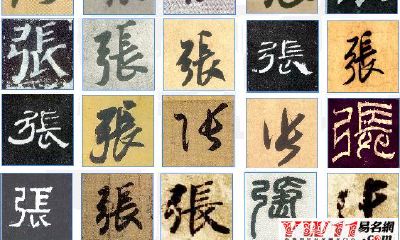 張 張 張 張 張
張 張 張 張 張
張 張 張 張
YW11 易名網
.com